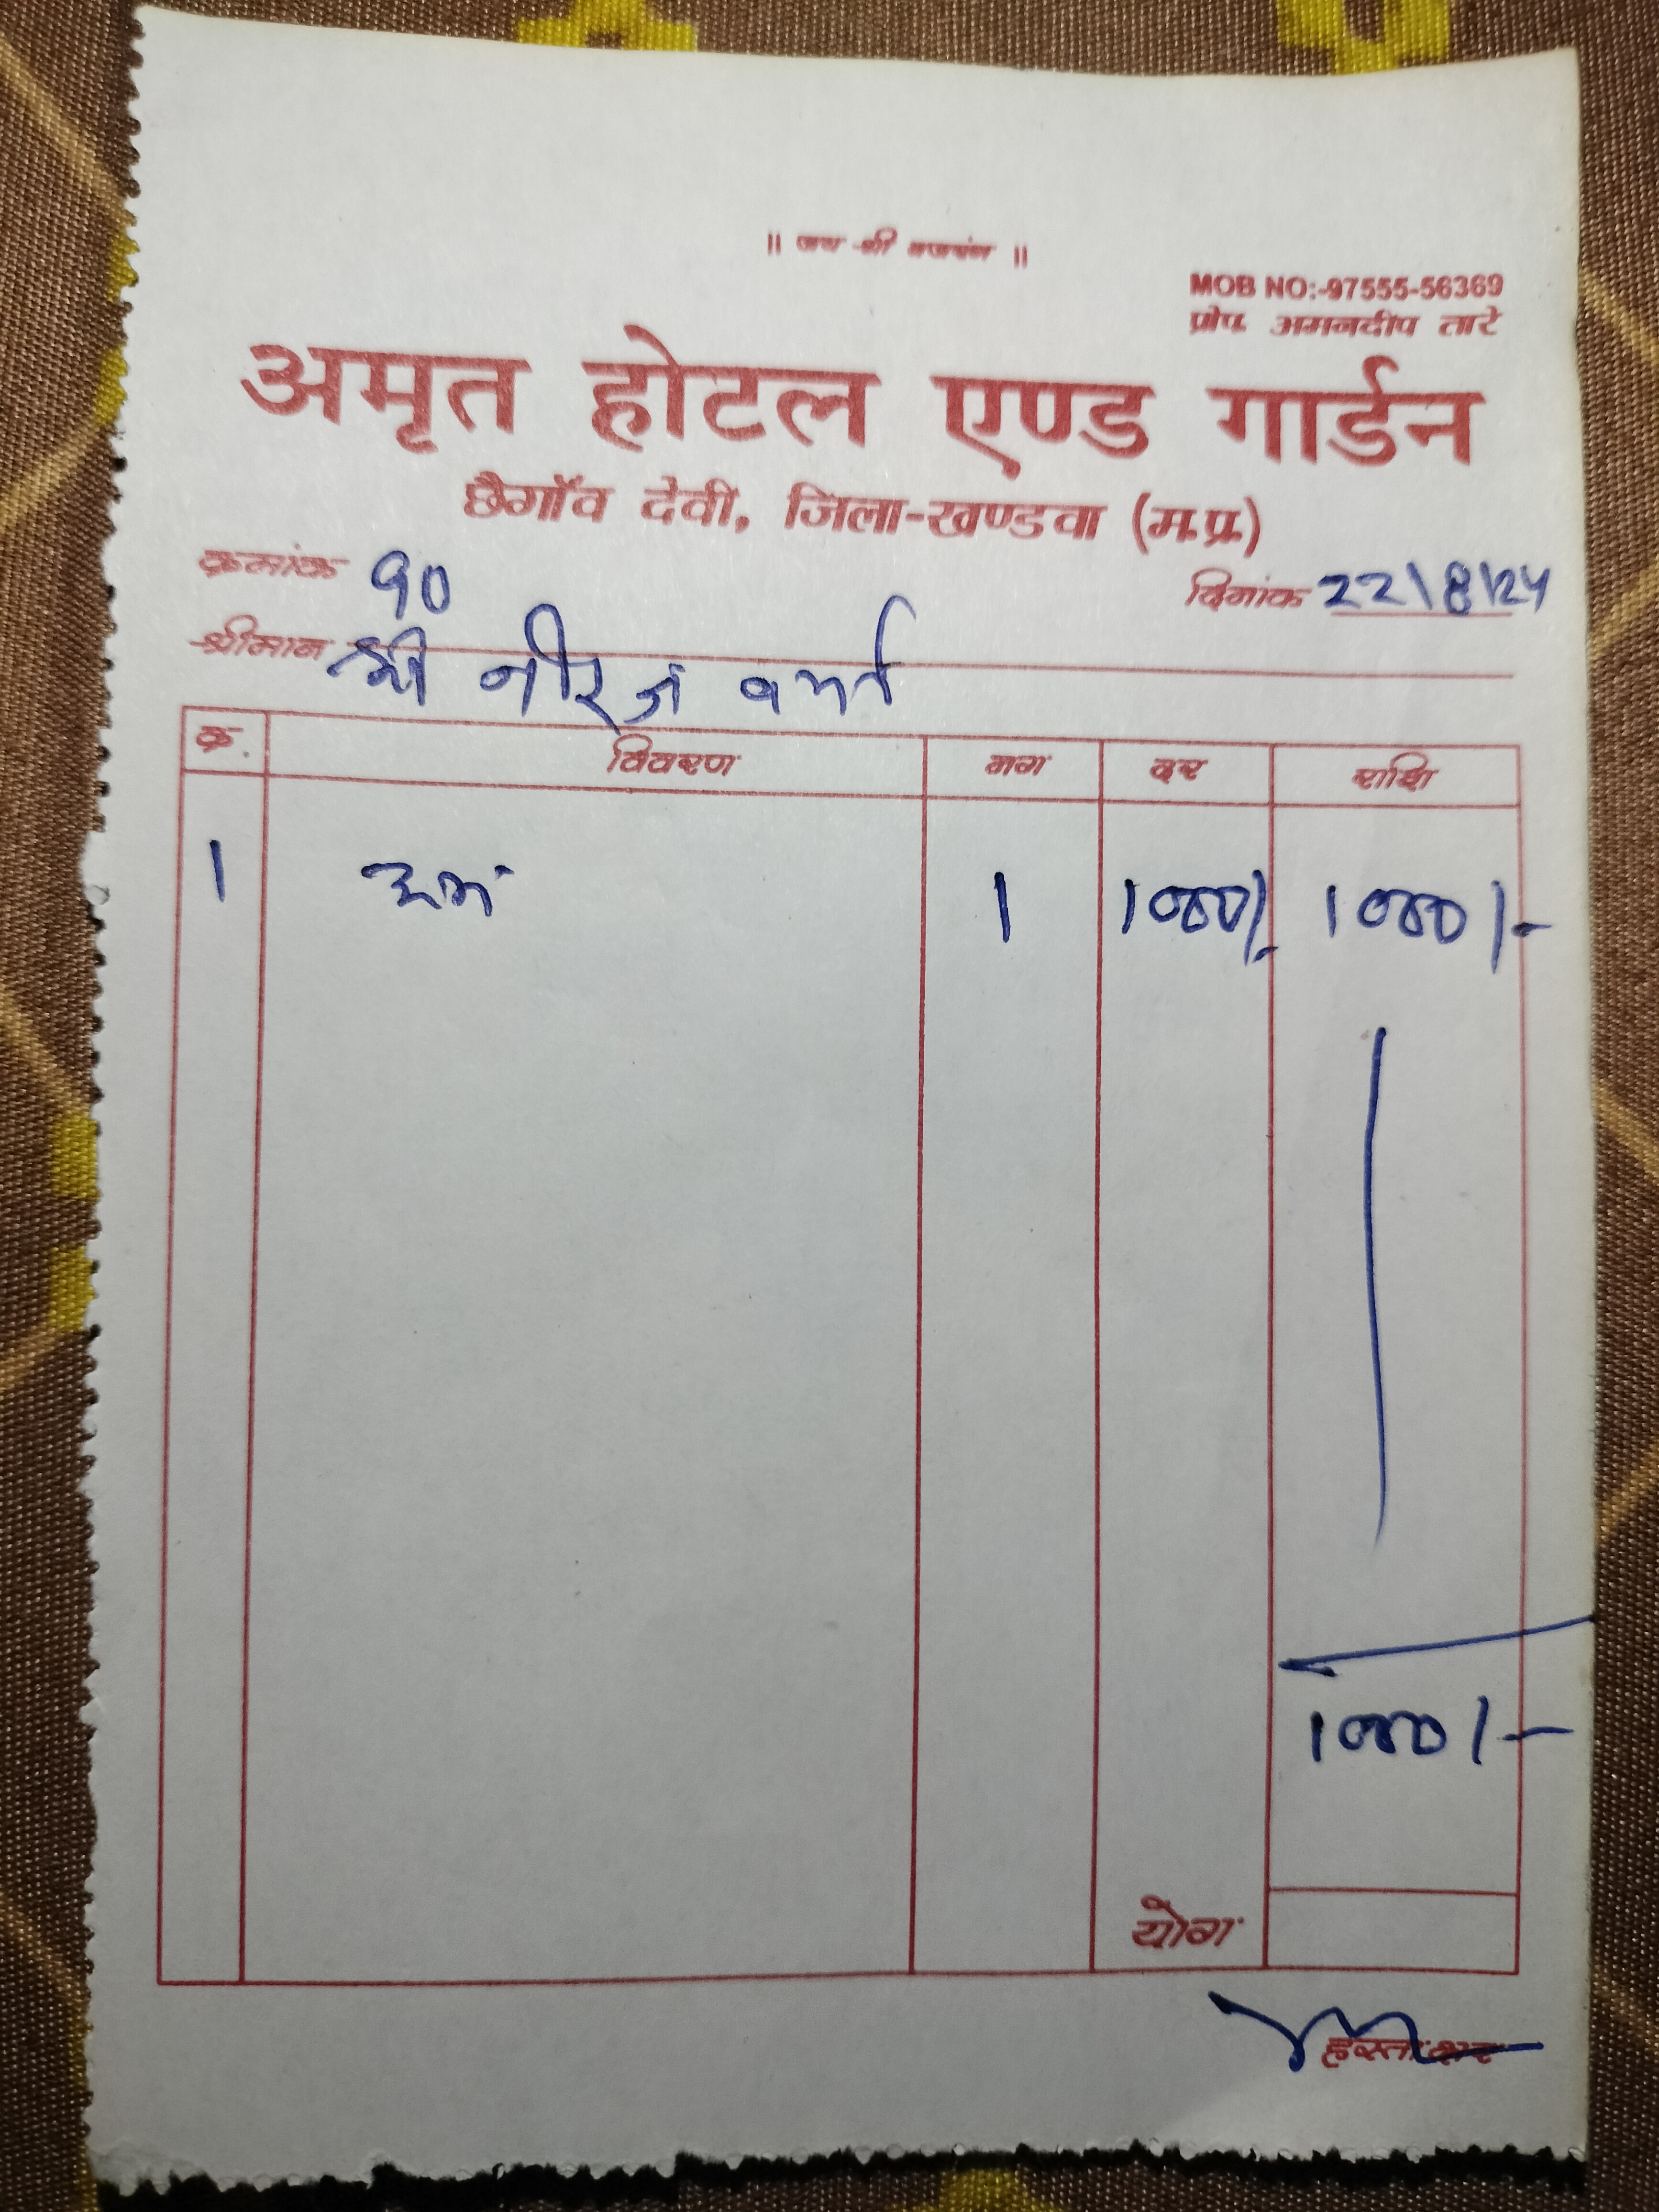 ॥ जय श्री बजरंग ॥
MOB NO:-97555-56369
प्रोप. अमनदीप तारे
अमृत होटल एण्ड गार्डन
छैगॉव देवी, जिला-खण्डवा (म.प्र.)
क्रमांक 90 दिनांक 22\8\24
श्रीमान श्री नीरज वर्मा
क्र. विवरण नग दर राशि
1 रूम 1 1000/- 1000/-
1000/-
योग
हस्ताक्षर